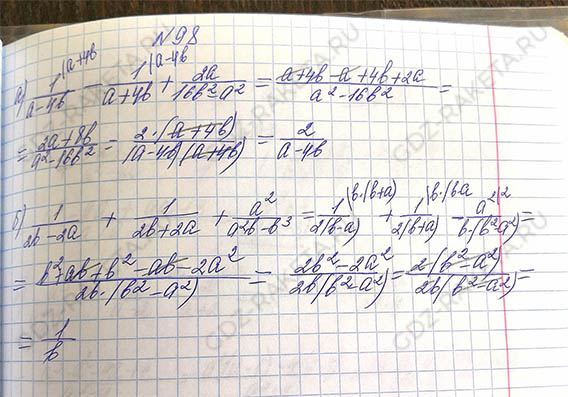 №98
а) 1/(a-4b) |a+4b - 1/(a+4b) |a-4b + 2a/(16b²-a²) = (a+4b-a+4b+2a)/(a²-16b²) =
= (2a+8b)/(a²-16b²) = 2·(a+4b)/((a-4b)(a+4b)) = 2/(a-4b)
б) 1/(2b-2a) + 1/(2b+2a) + a²/(a²b-b³) = 1/(2(b-a)) |b·(b+a) + 1/(2(b+a)) |b·(b-a - a²/(b·(b²-a²)) |2 =
= (b²+ab+b²-ab-2a²)/(2b·(b²-a²)) = (2b²-2a²)/(2b(b²-a²)) = 2(b²-a²)/(2b(b²-a²)) =
= 1/b
GDZ-RAKETA.RU